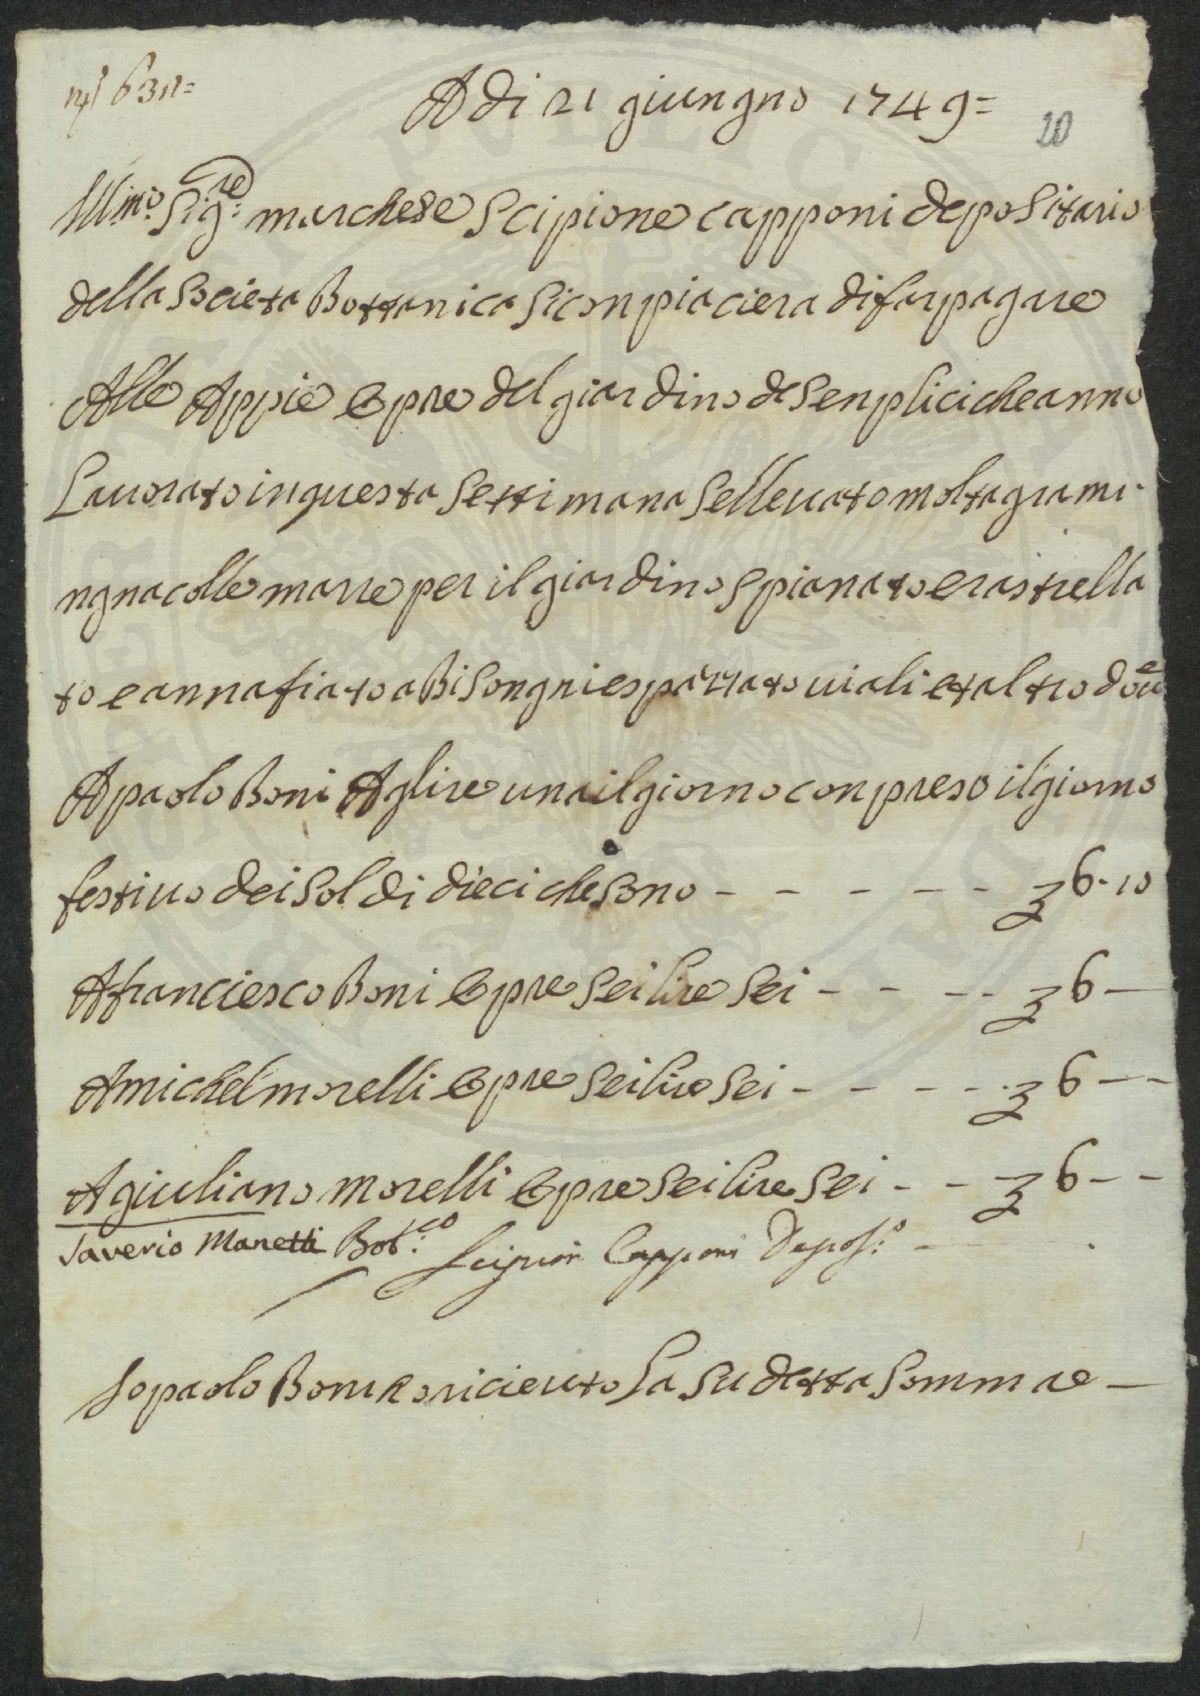 Adi 21 giungno 1749=
20
Illmo: Sigre: marchese Scipione capponi depositario
della Societa Bottanica Siconpiaciera difarpagare
Alle Appie Opre del giardino deSenplici cheanno
Lauorato inquesta SettimanaSelleuato molta grami
ngna colle marre per il giardino Spianato erastrella
to eannafiato aBisongni espazzato uiali etaltro doue
Apaolo Boni Aglire una ilgiorno conpreso ilgiorno
festiuo dei Soldi dieci che sono - - - - - 6-10
Afranciesco Boni Opre Sei lire Sei - - - - 6 —
Amichel morelli Opre Sei lire Sei - - - - - 6 - -
Agiuliano morelli Opre Sei lire Sei - - - 6 - -
Saverio Manetti Botco: Scipion Capponi Deposo:
Io paolo Boni Ro riceuto La Sudetta Somma e —